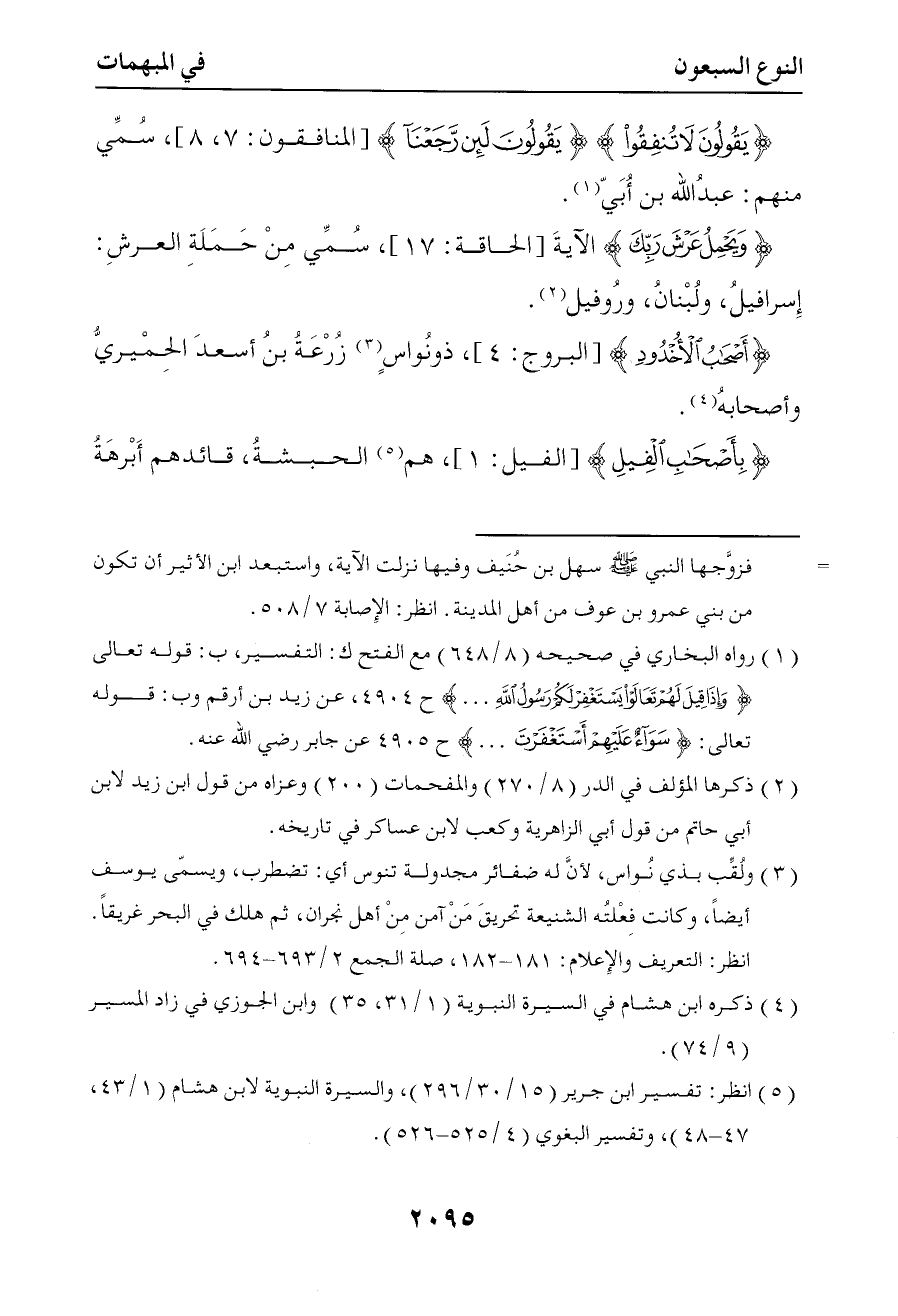 النوع السبعون في المبهمات
﴿ يَقُولُونَ لَا تُنفِقُواْ ﴾ ﴿ يَقُولُونَ لَئِن رَّجَعْنَآ ﴾ [المنافقون: ٧، ٨]، سُمِّي
منهم: عبدُالله بن أُبَيّ(١).
﴿ وَيَحْمِلُ عَرْشَ رَبِّكَ ﴾ الآيةَ [الحاقة: ١٧]، سُمِّي مِنْ حَمَلَةِ العرشِ:
إسرافيلُ، ولُبْنانُ، ورُوفيل(٢).
﴿ أَصْحَٰبُ ٱلْأُخْدُودِ ﴾ [البروج: ٤]، ذونُواسٍ(٣) زُرْعَةُ بنُ أسعدَ الحِمْيريُّ
وأصحابهُ(٤).
﴿ بِأَصْحَٰبِ ٱلْفِيلِ ﴾ [الفيل: ١]، هم(٥) الحبشةُ، قائدهم أَبْرهَةُ
= فزوَّجها النبي ﷺ سهل بن حُنَيف وفيها نزلت الآية، واستبعد ابن الأثير أن تكون
من بني عمرو بن عوف من أهل المدينة. انظر: الإصابة ٥٠٨/٧.
(١) رواه البخاري في صحيحه (٦٤٨/٨) مع الفتح ك: التفسير، ب: قوله تعالى
﴿ وَإِذَا قِيلَ لَهُمْ تَعَالَوْاْ يَسْتَغْفِرْ لَكُمْ رَسُولُ ٱللَّهِ ... ﴾ ح ٤٩٠٤، عن زيد بن أرقم وب: قوله
تعالى: ﴿ سَوَآءٌ عَلَيْهِمْ أَسْتَغْفَرْتَ ... ﴾ ح ٤٩٠٥ عن جابر رضي الله عنه.
(٢) ذكرها المؤلف في الدر (٢٧٠/٨) والمفحمات (٢٠٠) وعزاه من قول ابن زيد لابن
أبي حاتم من قول أبي الزاهرية وكعب لابن عساكر في تاريخه.
(٣) ولُقِّب بذي نُواس، لأنَّ له ضفائر مجدولة تنوس أي: تضطرب، ويسمّى يوسف
أيضاً، وكانت فِعْلتُه الشنيعة تحريقَ مَنْ آمن مِنْ أهل نجران، ثم هلك في البحر غريقاً.
انظر: التعريف والإعلام: ١٨١-١٨٢، صلة الجمع ٦٩٣/٢-٦٩٤.
(٤) ذكره ابن هشام في السيرة النبوية (٣١/١، ٣٥) وابن الجوزي في زاد المسير
(٧٤/٩).
(٥) انظر: تفسير ابن جرير (٢٩٦/٣٠/١٥)، والسيرة النبوية لابن هشام (٤٣/١،
٤٧-٤٨)، وتفسير البغوي (٥٢٥/٤-٥٢٦).
٢٠٩٥